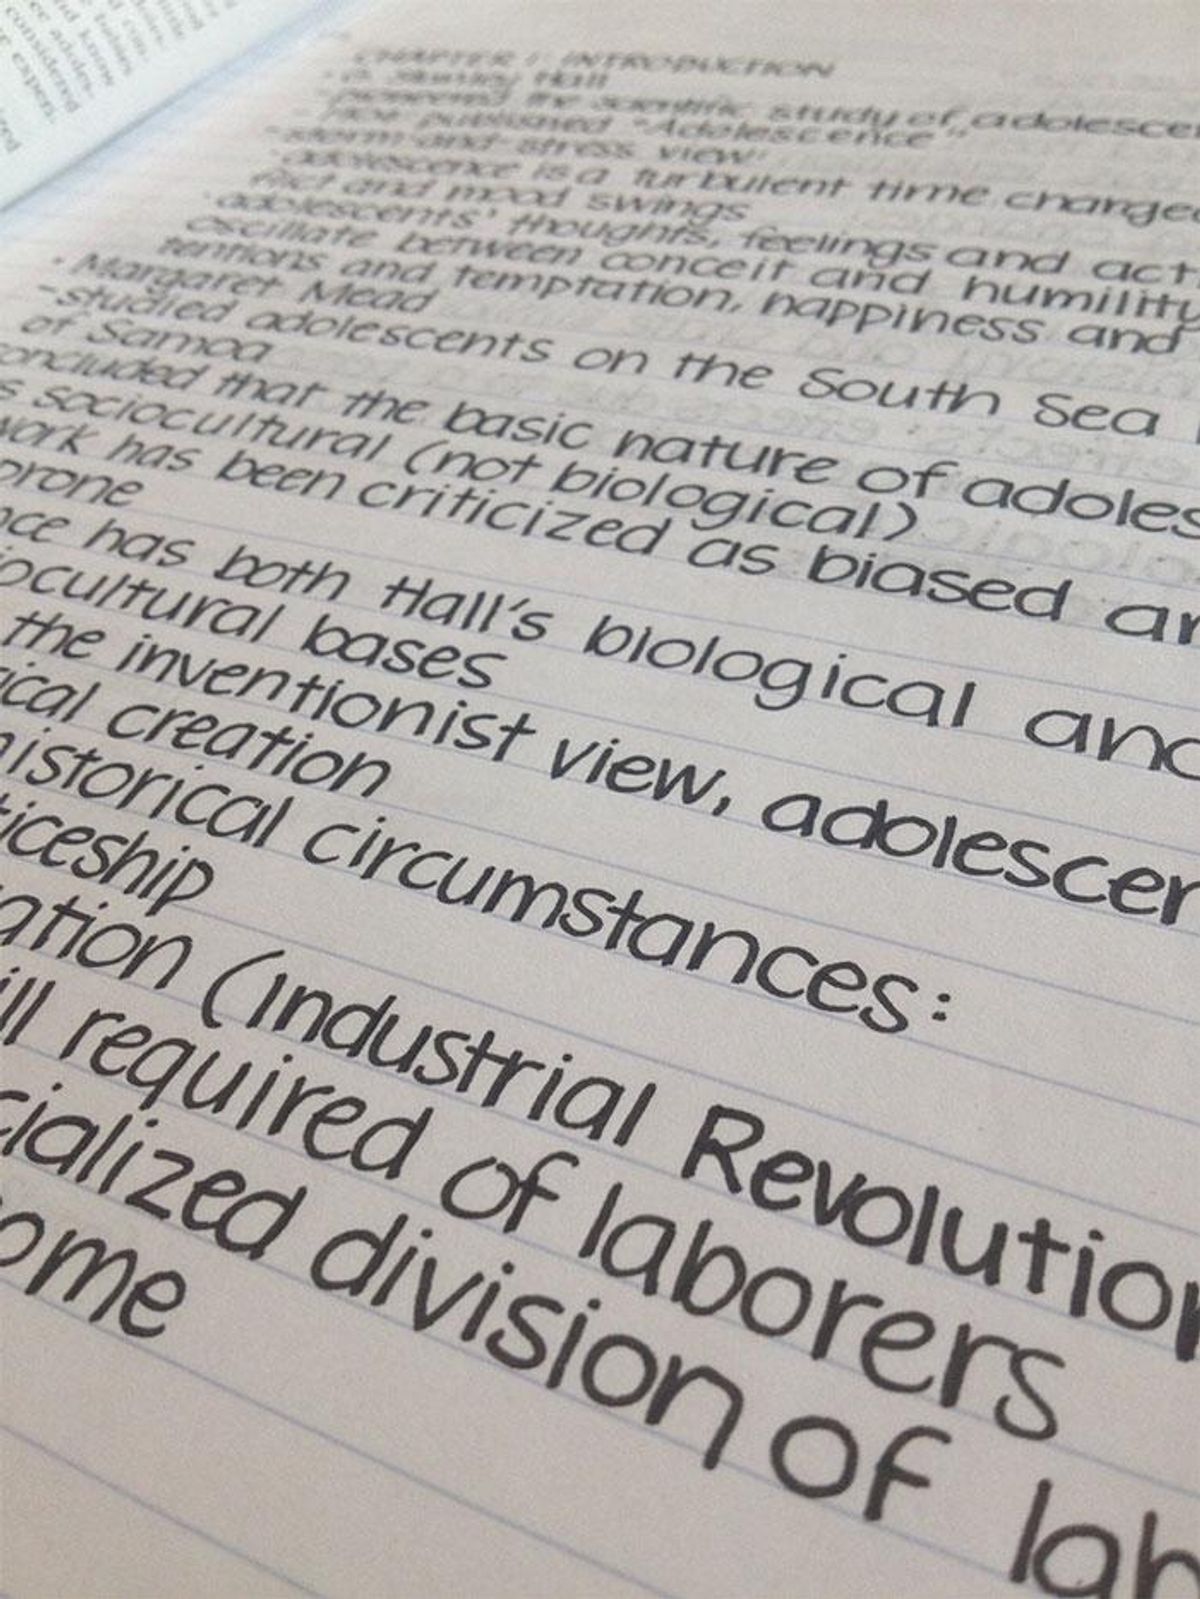 CHAPTER 1: INTRODUCTION
• G. Stanley Hall
-pioneered the scientific study of adolesce
published "Adolescence"
-storm-and-stress view:
adolescence is a turbulent time charge
flict and mood swings
adolescents' thoughts, feelings and act
oscillate between conceit and humility
tentions and temptation, happiness and
• Margaret Mead
-studied adolescents on the South Sea
of Samoa
oncluded that the basic nature of adoles
s sociocultural (not biological)
work has been criticized as biased an
prone
nce has both Hall's biological and
iocultural bases
the inventionist view, adolescen
ical creation
historical circumstances:
ticeship
ation (Industrial Revolution
ill required of laborers
cialized division of lab
ome